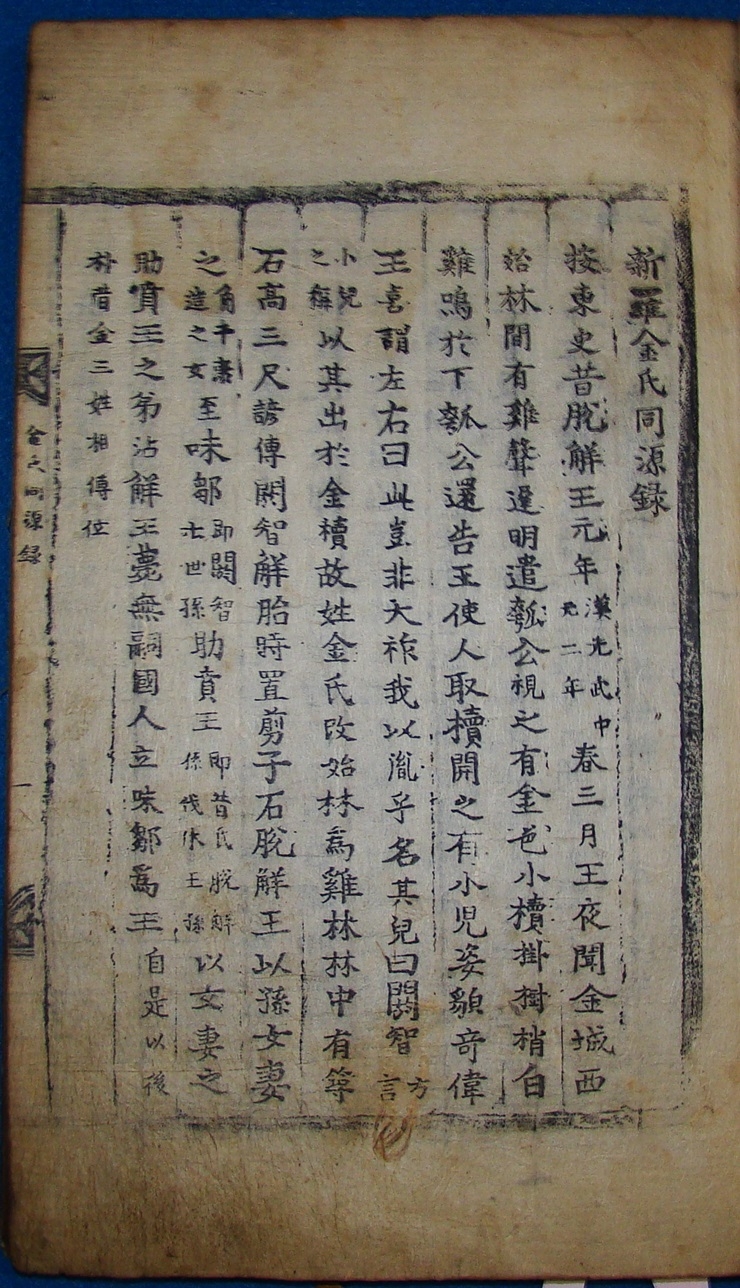 新羅金氏同源録
按東史昔脫解王元年漢光武中元二年春三月王夜聞金城西
始林間有雞聲遲明遣瓠公視之有金色小櫝掛樹梢白
雞鳴於下瓠公還告王使人取櫝開之有小兒姿貌奇偉
王喜謂左右曰此豈非天祚我以胤乎名其兒曰閼智方言
小兒之稱以其出於金櫝故姓金氏改始林爲雞林林中有
石高三尺諺傳閼智解胎時置剪子石脫解王以孫女妻
之角干康造之女至味鄒即閼智七世孫助賁王即昔氏脫解孫伐休王孫以女妻之
助賁王之弟沾解王薨無嗣國人立味鄒爲王自是以後
朴昔金三姓相傳位
金氏同源録
一